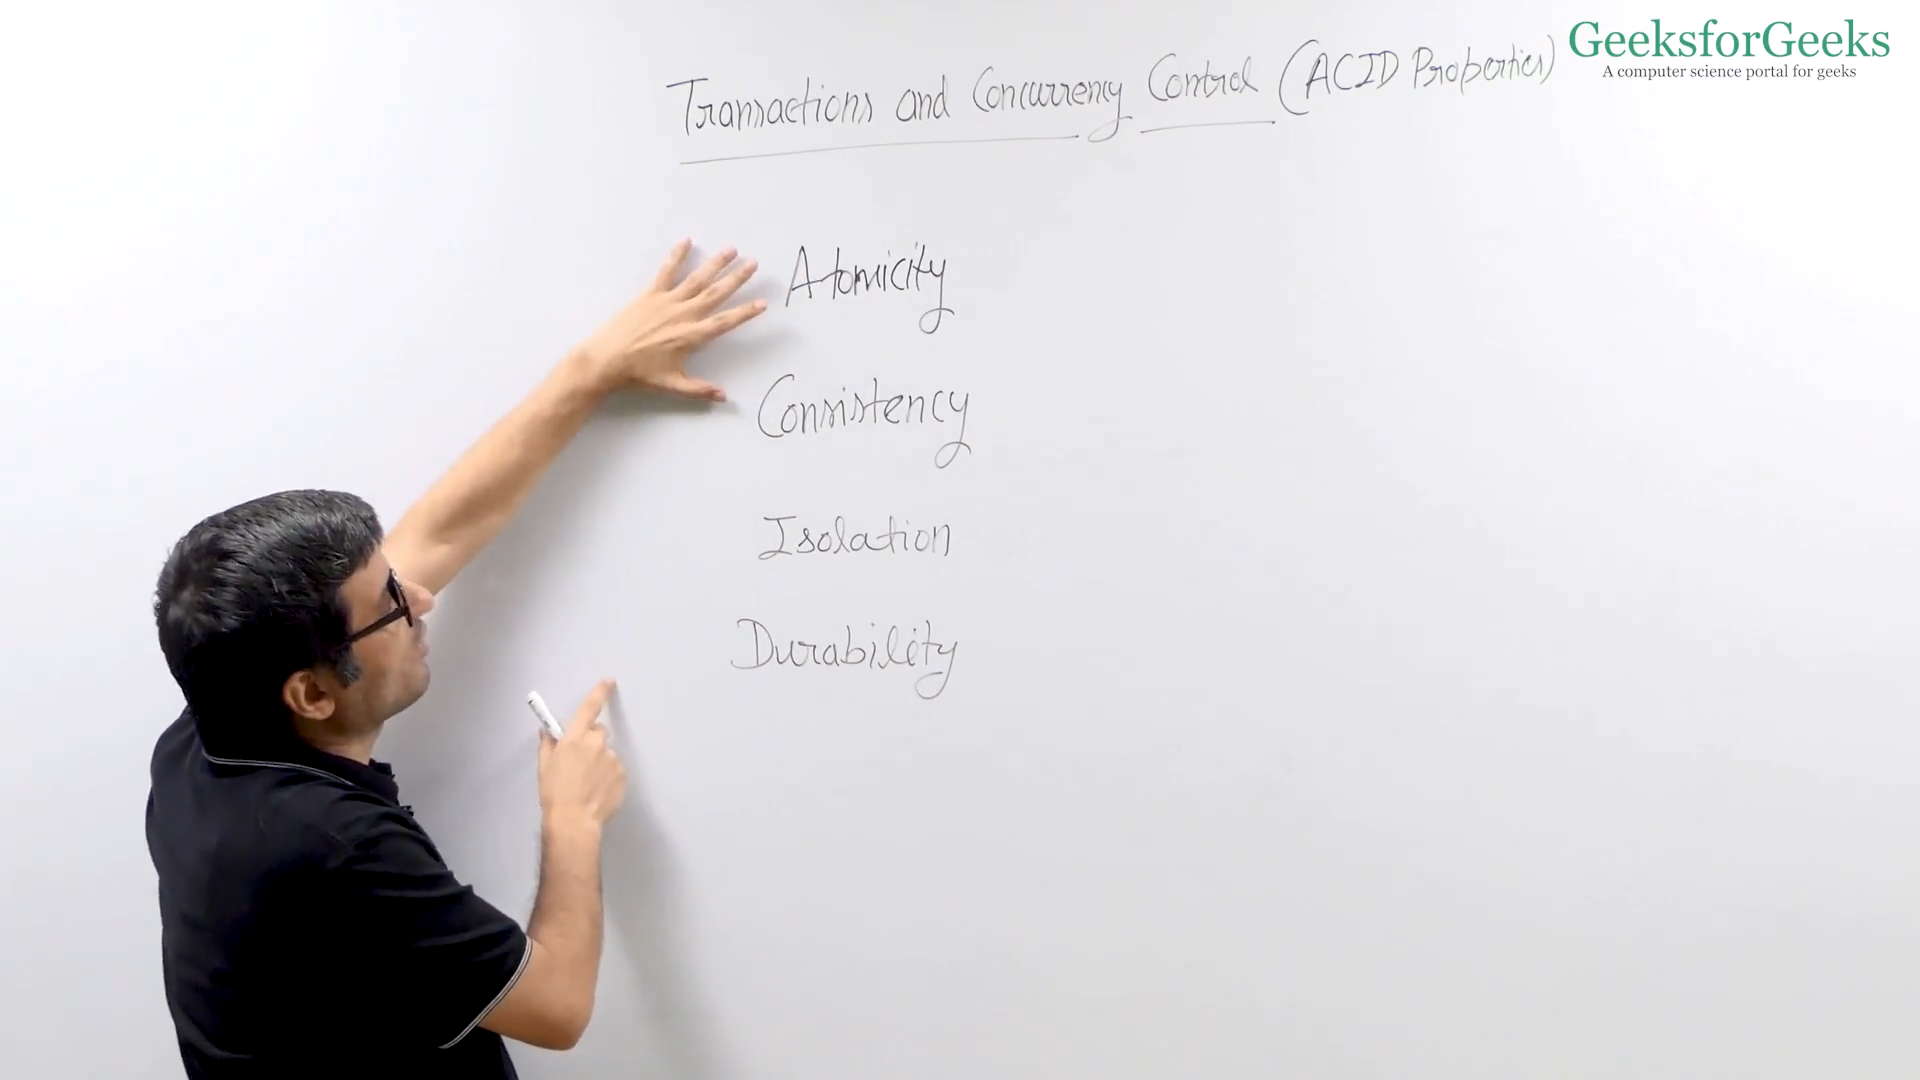 GeeksforGeeks
A computer science portal for geeks
Transactions and Concurrency Control (ACID Properties)
Atomicity
Consistency
Isolation
Durability